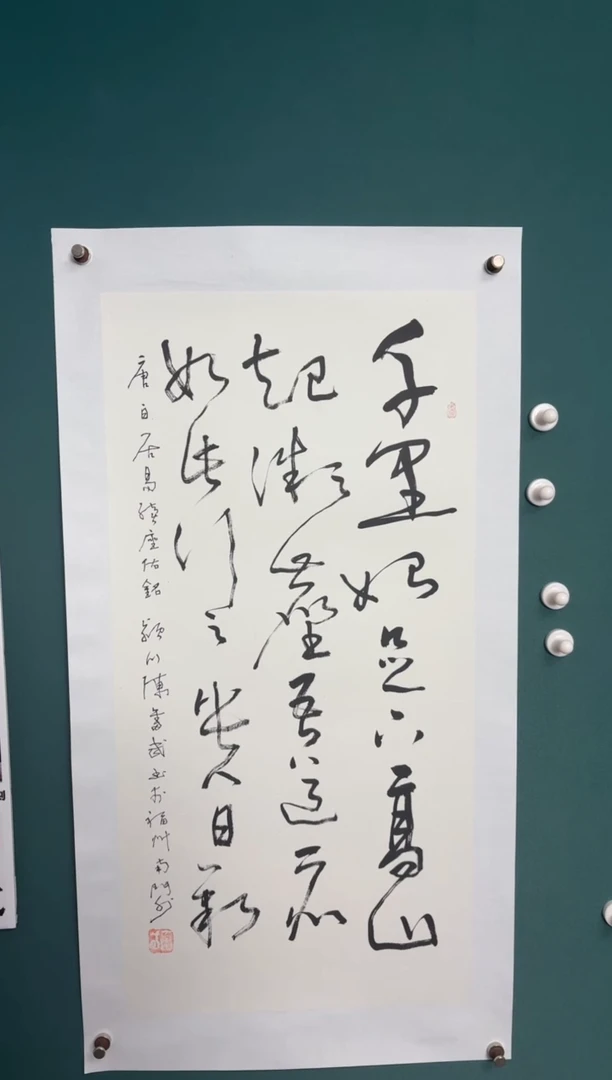 千里始足下高山
起微塵吾道亦
如此行之貴日新
唐白居易續座佑銘 潁川陳奮武書於福州南門外